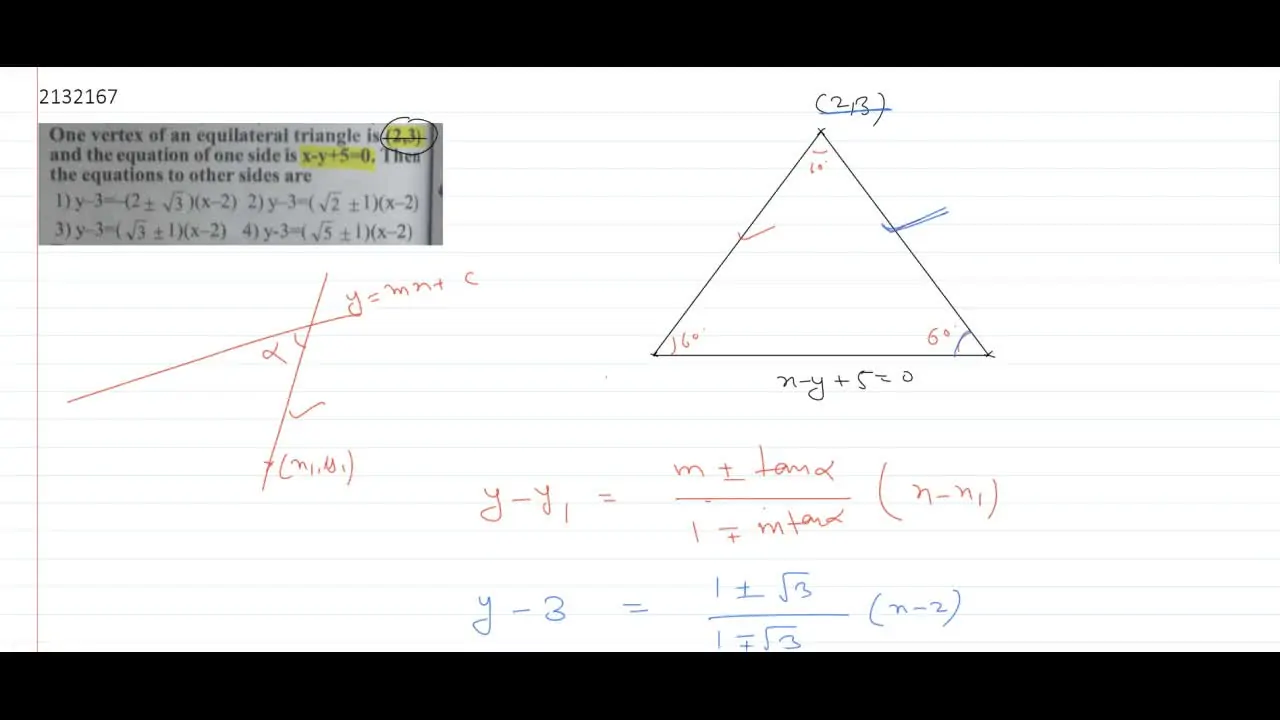 2132167
One vertex of an equilateral triangle is (2,3)
and the equation of one side is x-y+5=0. Then
the equations to other sides are
1) y–3=–(2 ± √3)(x–2) 2) y–3=(√2 ±1)(x–2)
3) y–3=(√3 ±1)(x–2) 4) y-3=(√5 ±1)(x–2)
(2,3)
60°
60°
60°
x-y+5=0
y=mx+c
α
(x₁,y₁)
y-y₁ = (m ± tanα)/(1 ∓ m tanα) (x-x₁)
y-3 = (1 ± √3)/(1 ∓ √3) (x-2)